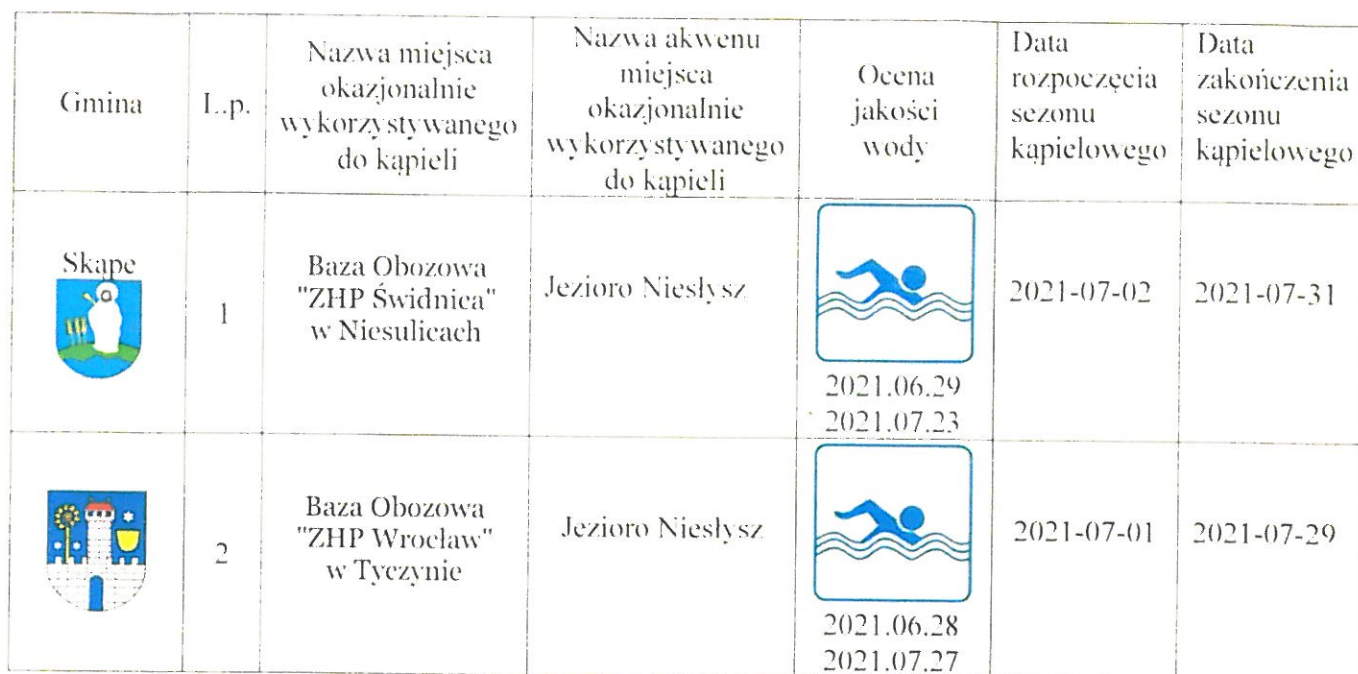 Gmina
L.p.
Nazwa miejsca
okazjonalnie
wykorzystywanego
do kąpieli
Nazwa akwenu
miejsca
okazjonalnie
wykorzystywanego
do kąpieli
Ocena
jakości
wody
Data
rozpoczęcia
sezonu
kąpielowego
Data
zakończenia
sezonu
kąpielowego
Skąpe
1
Baza Obozowa
"ZHP Świdnica"
w Niesulicach
Jezioro Niesłysz
2021.06.29
2021.07.23
2021-07-02
2021-07-31
2
Baza Obozowa
"ZHP Wrocław"
w Tyczynie
Jezioro Niesłysz
2021.06.28
2021.07.27
2021-07-01
2021-07-29